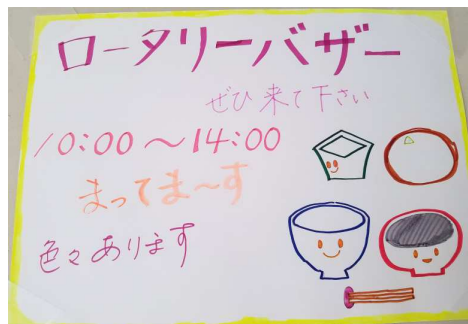 ロータリーバザー
ぜひ来て下さい
10:00〜14:00
まってま〜す
色々あります